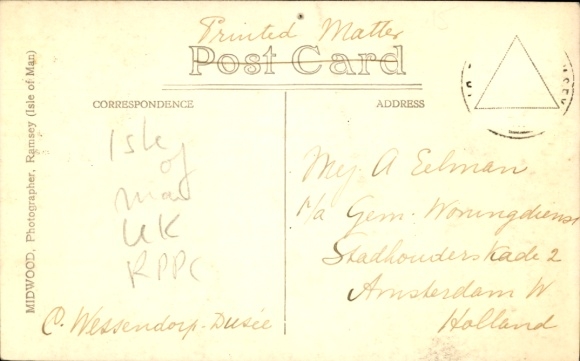 Printed Matter
Post Card
CORRESPONDENCE
ADDRESS
MIDWOOD, Photographer, Ramsey (Isle of Man)
Isle
of
man
UK
RPPC
C. Wessendorp-Dusée
Mej. A Eelman
p/a Gem. Woningdienst
Stadhouderskade 2
Amsterdam W
Holland